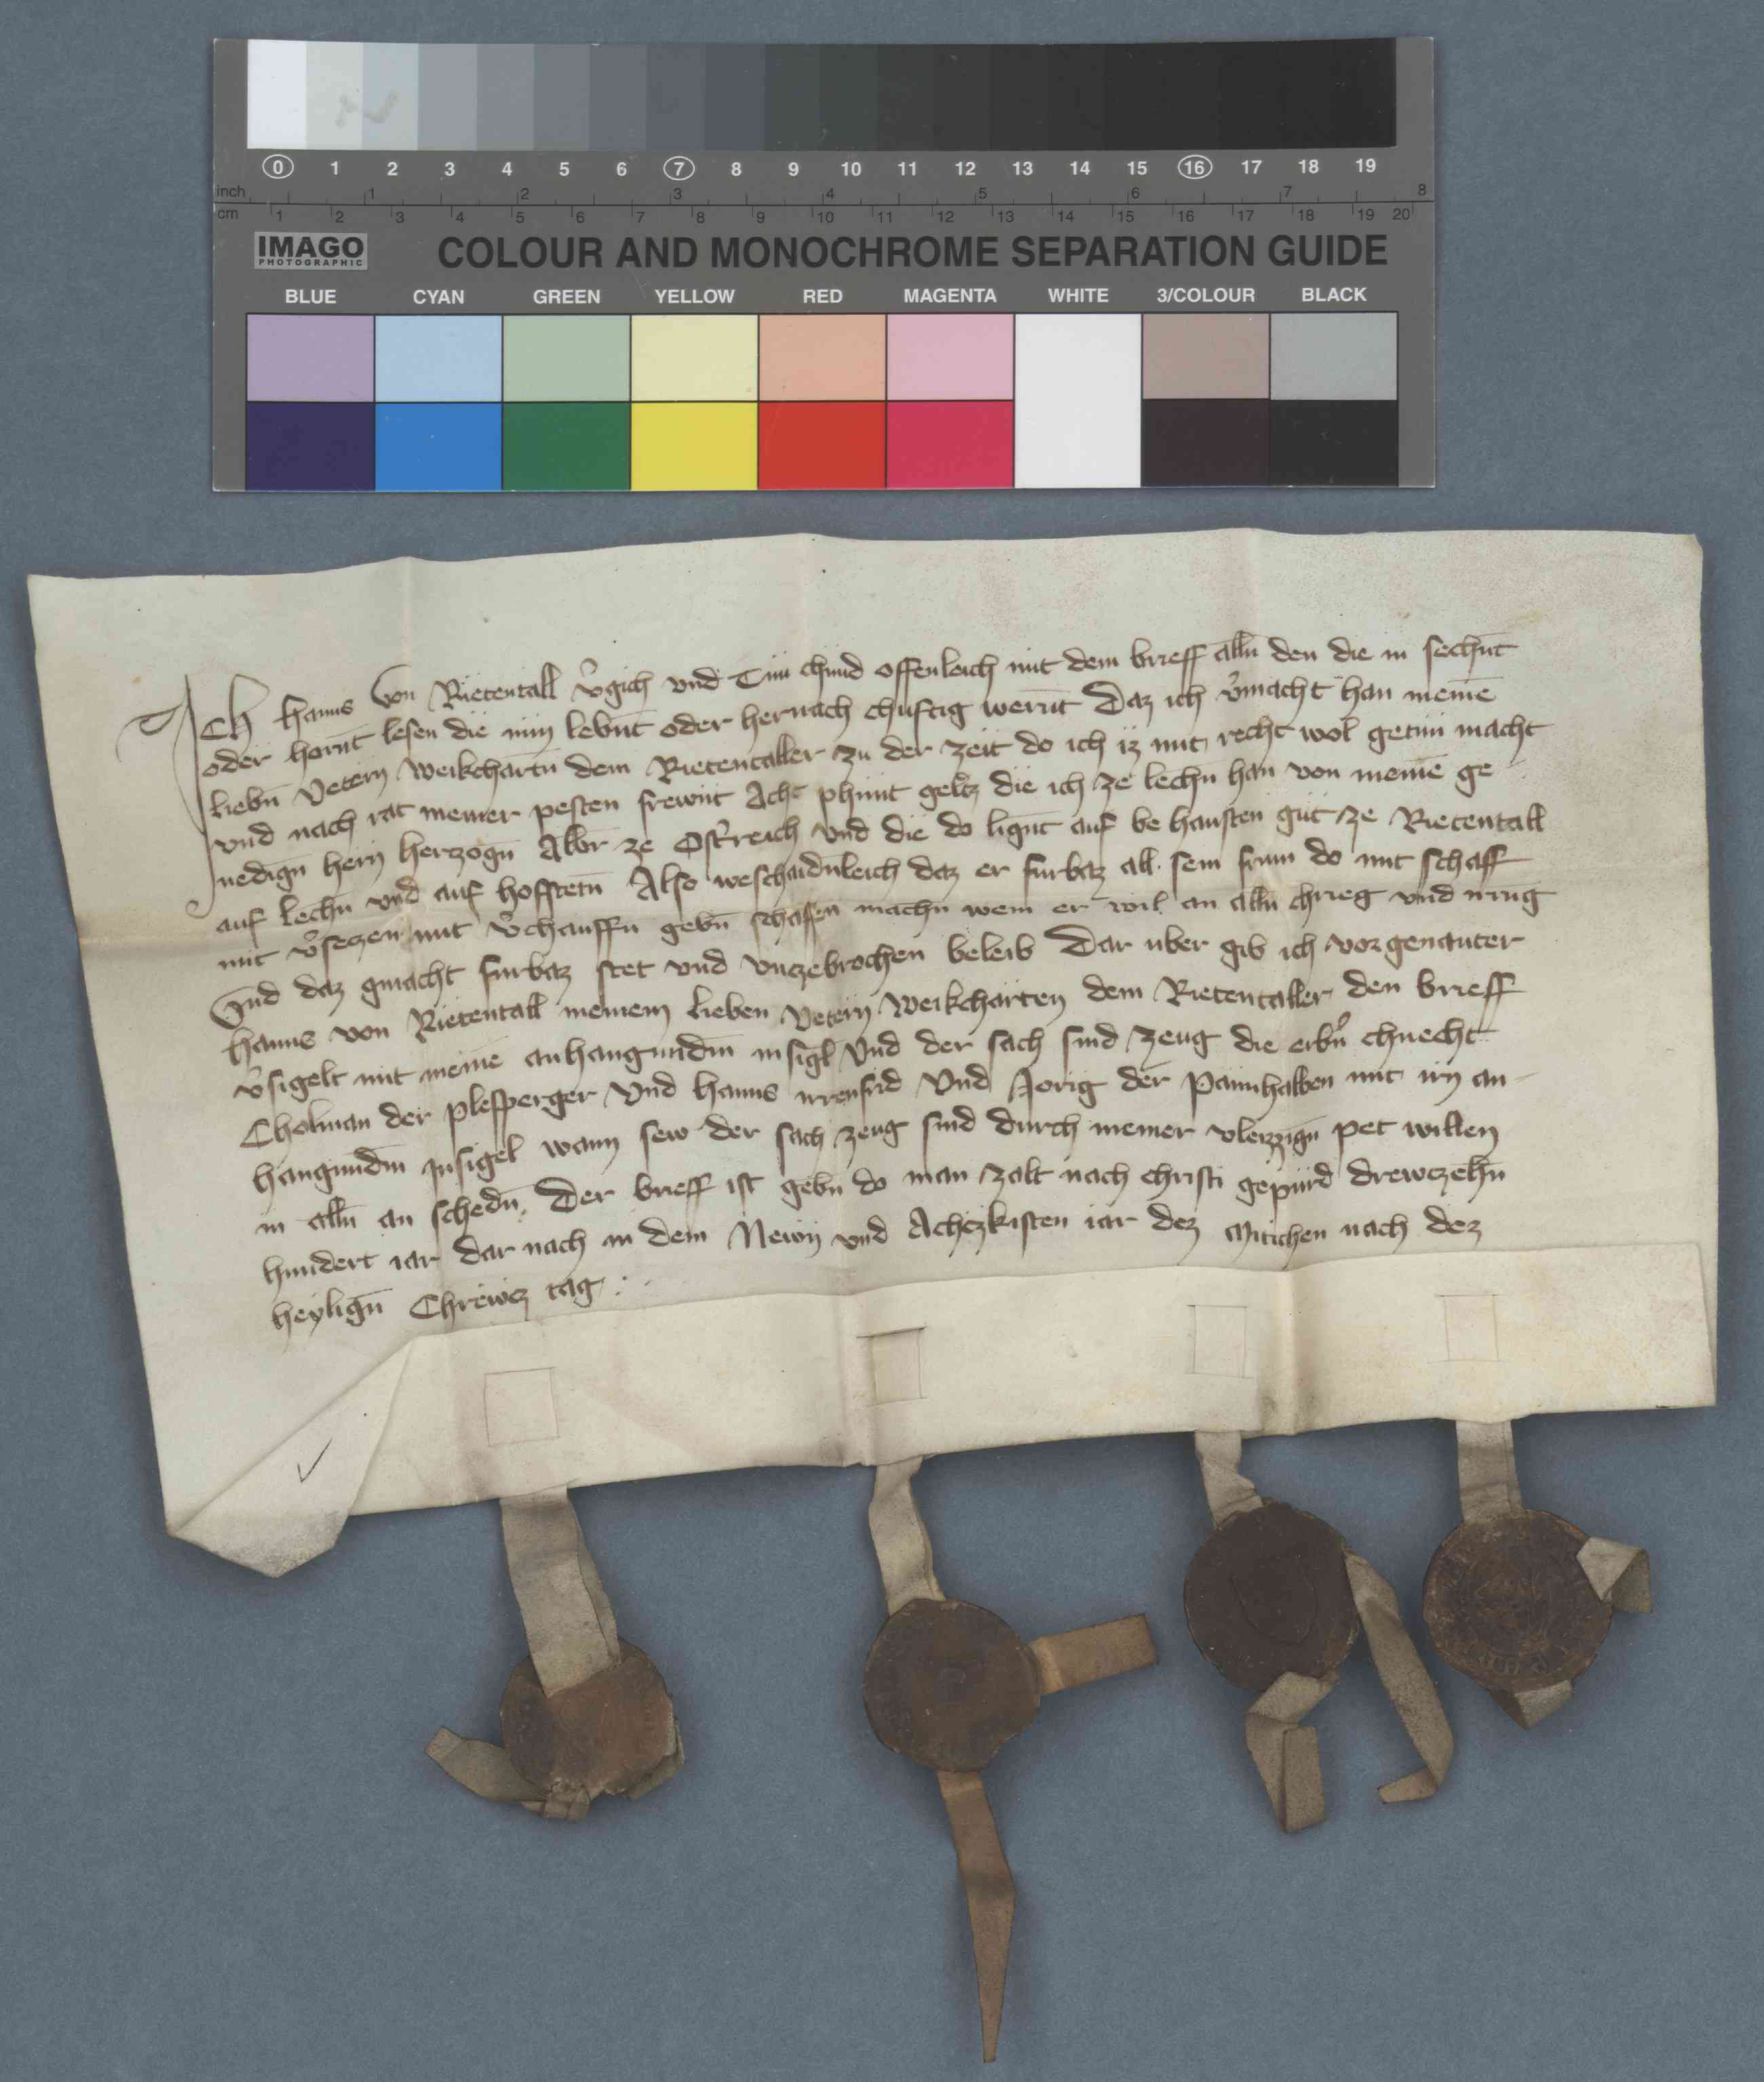 0 1 2 3 4 5 6 7 8 9 10 11 12 13 14 15 16 17 18 19
inch 1 2 3 4 5 6 7 8
cm 1 2 3 4 5 6 7 8 9 10 11 12 13 14 15 16 17 18 19 20
IMAGO
PHOTOGRAPHIC
COLOUR AND MONOCHROME SEPARATION GUIDE
BLUE CYAN GREEN YELLOW RED MAGENTA WHITE 3/COLOUR BLACK
ICh Hanns von Rietentall v̓gich vnd Tun chund offenleich mit dem brieff alln̄ den die in sechnt̄
oder hornt̄ lesen die nun lebnt̄ oder hernach chuftig wernt̄ Daz ich v̓macht han meinē
liebn̄ Vetern Weikchartn̄ dem Rietentaller zu der zeit do ich iz mit recht wol getun macht
vnd nach rat meiner pesten frewnt Acht phunt geltz die ich ze lechn̄ han von meinē ge
nedign̄ hern herzogn̄ Albr̄ ze Ost̓reich vnd die do lignt̄ auf be hausten gut ze Rietentall
auf lechn̄ vnd auf hofstetn̄ Also weschaidnleich daz er furbaz all sein frum do mit schaff
mit v̓setzen mit v̓chauffn̄ gebn̄ schaffen machn̄ wem er wil an alln̄ chrieg vnd irruḡ
Vnd daz gmacht furbaz stet vnd vnczebrochen beleib Dar uber gib ich vorgenanter
Hanns von Rietentall meinem lieben Vetern Weikcharten dem Rietentaller den brieff
v̓sigelt mit meinē anhangundm̄ insigl Vnd der sach sind zeug die erbn̓ chnecht
Cholman der plesperger Vnd Hanns irrenfrid Vnd Jorig der Paimhalben mit irn an
hangundm̄ Insigel wann sew der sach zeug sind durch meiner vleizzign̄ pet willen
in alln̄ an schedn̄. Der brieff ist gebn̄ do man zalt nach christi gepurd drewczehn̄
hundert iar dar nach in dem Newn vnd Achczkisten iar dez Mitichen nach dez
heylign̄ Chrewcz tag